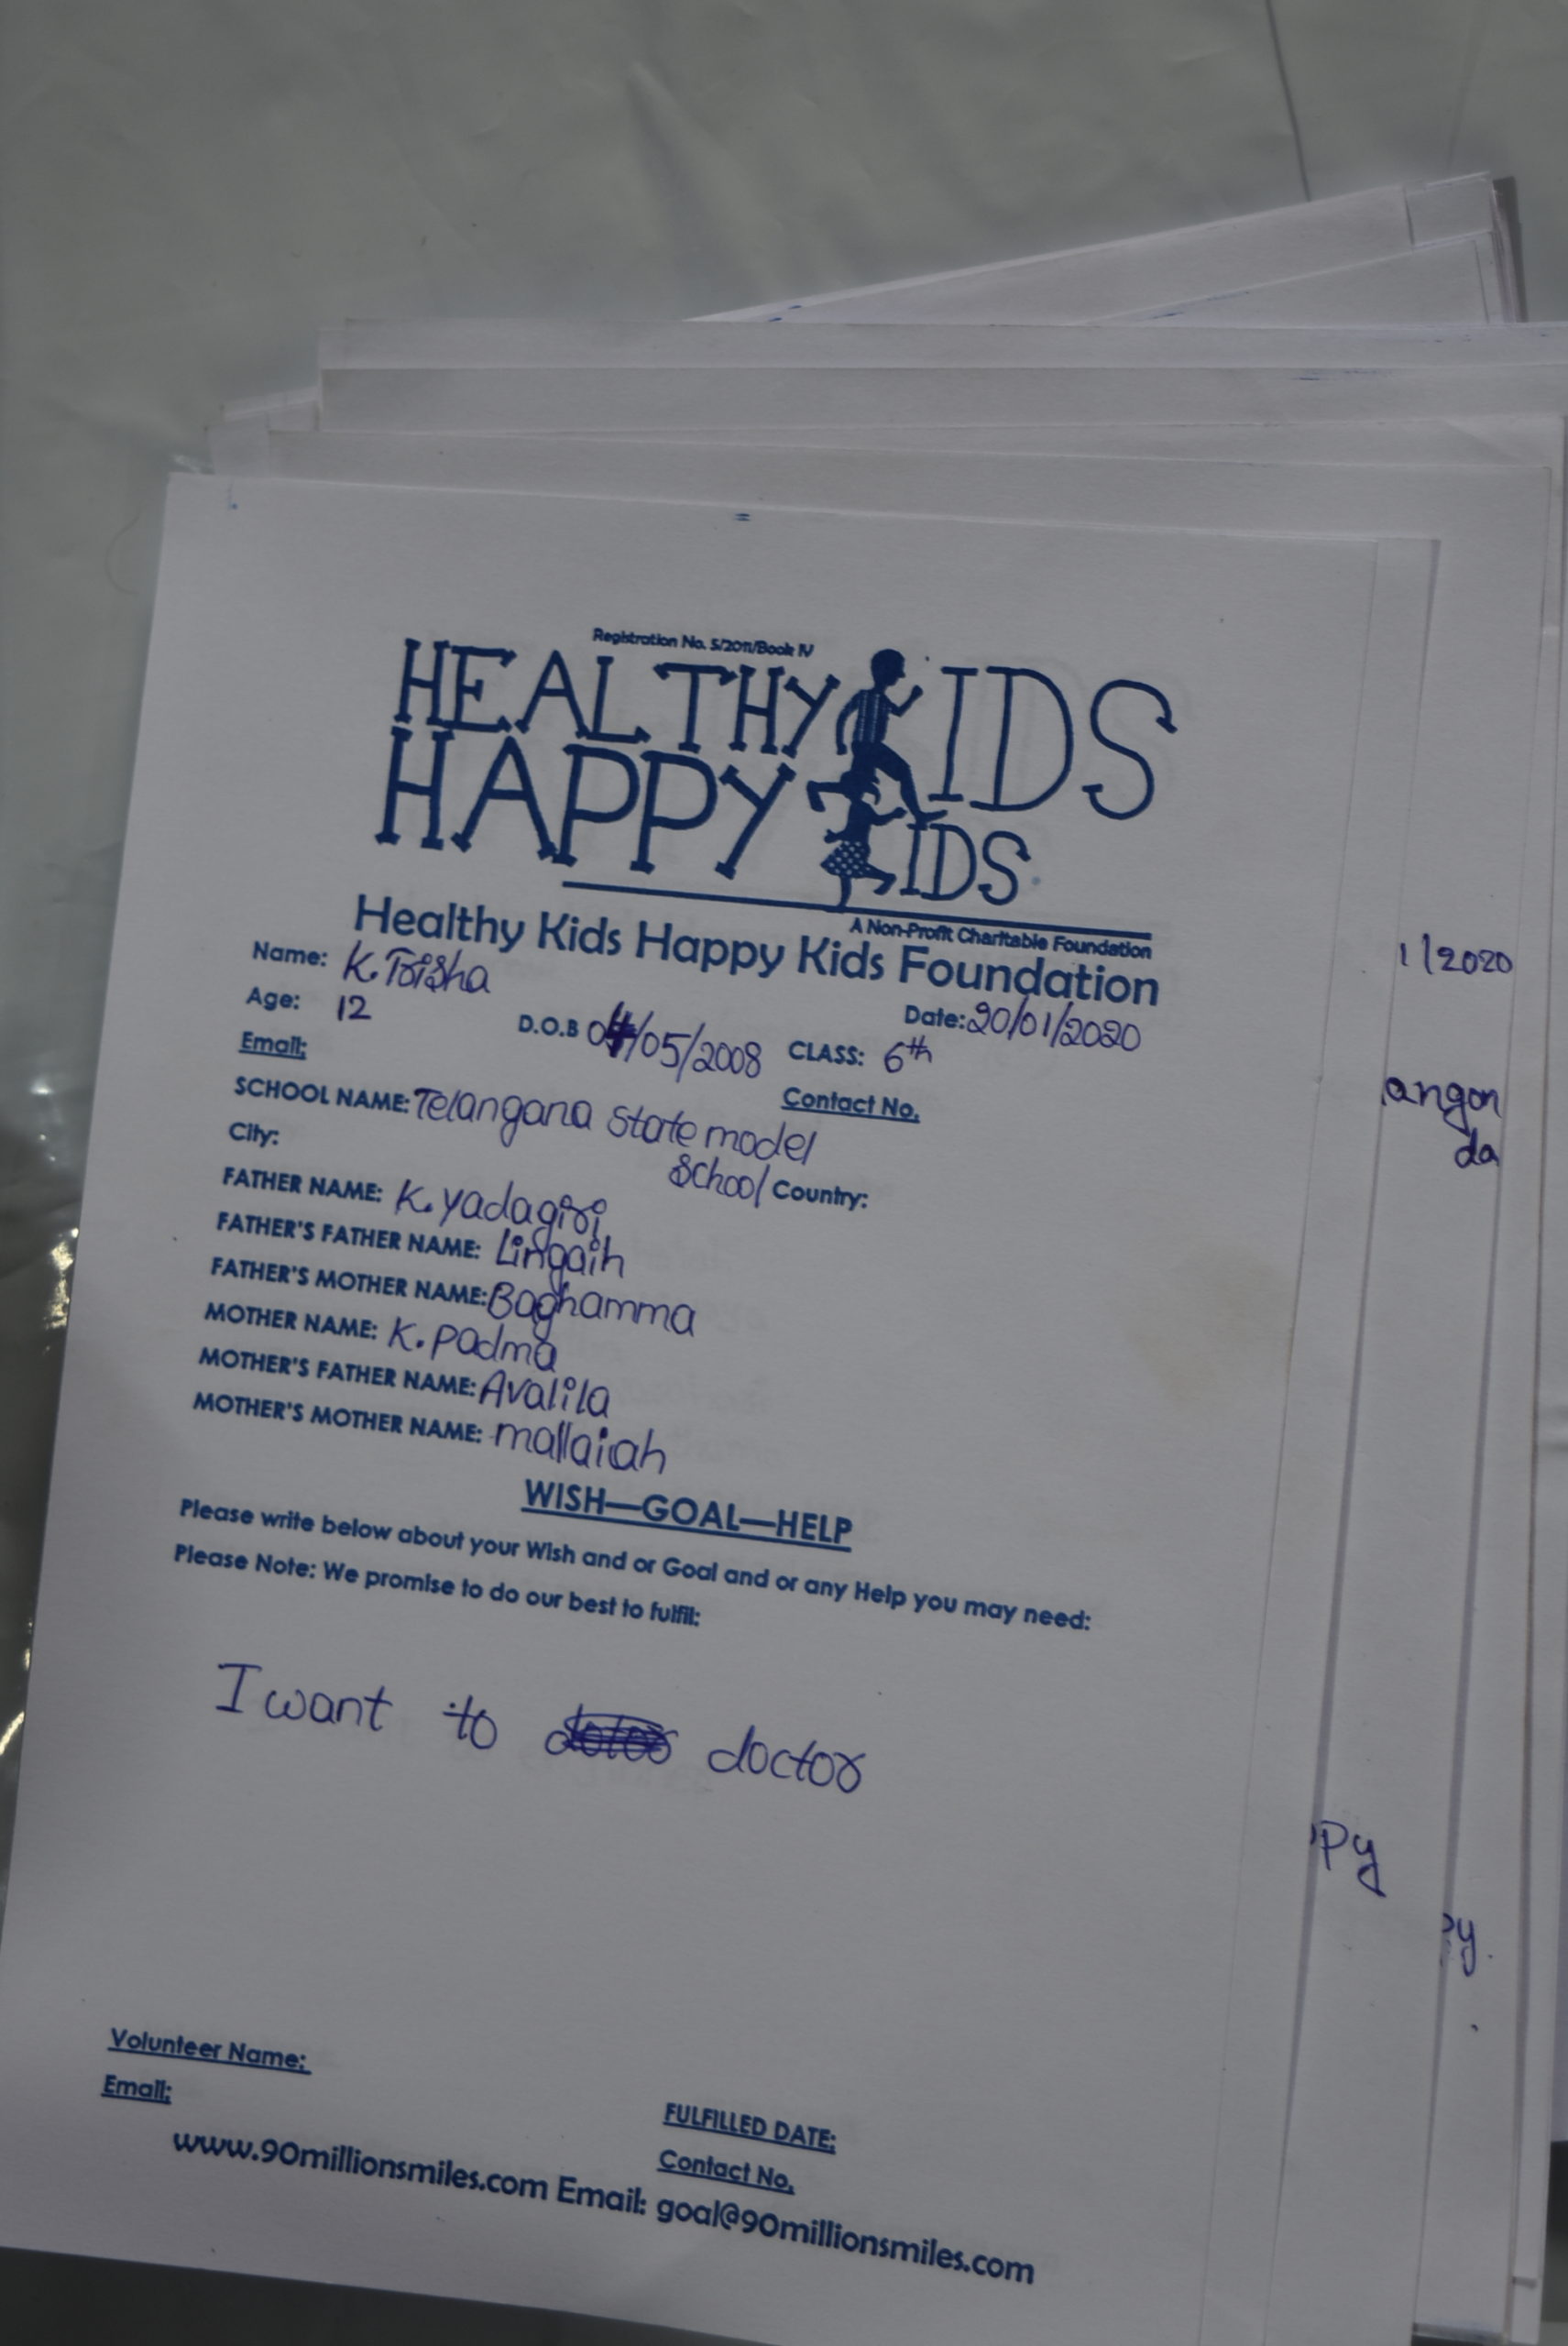 Registration No. 5/2011/Book IV
HEALTHY KIDS
HAPPY KIDS
A Non-Profit Charitable Foundation
Healthy Kids Happy Kids Foundation
Name: K. Trisha
Date: 20/01/2020
Age: 12 D.O.B 04/05/2008 CLASS: 6th
Email:
Contact No.
SCHOOL NAME: Telangana State model
School
City: Country:
FATHER NAME: K. yadagiri
FATHER'S FATHER NAME: Lingaih
FATHER'S MOTHER NAME: Baghamma
MOTHER NAME: K. padma
MOTHER'S FATHER NAME: Avalila
MOTHER'S MOTHER NAME: mallaiah
WISH—GOAL—HELP
Please write below about your Wish and or Goal and or any Help you may need:
Please Note: We promise to do our best to fulfil:
I want to doctor
Volunteer Name:
FULFILLED DATE:
Email:
Contact No.
www.90millionsmiles.com Email: goal@90millionsmiles.com
1/2020
angon
da
ppy
py.